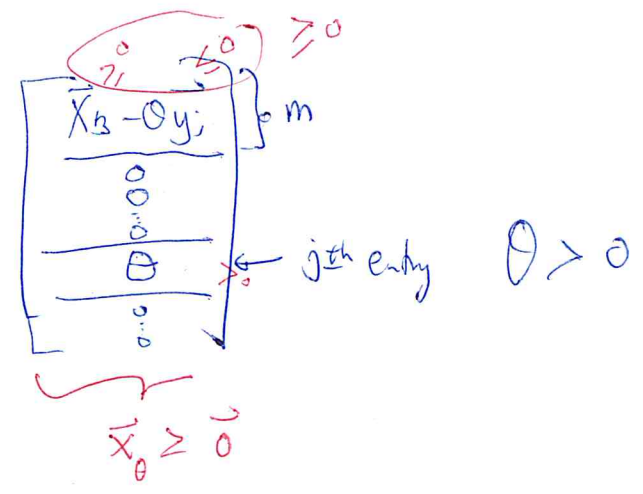 ≥ 0 ≤ 0 ≥ 0
x⃗_B - θ y⃗_j } m
0
0
⋮
0
θ > 0 ← jth entry θ > 0
0
⋮
0
x⃗_θ ≥ 0⃗